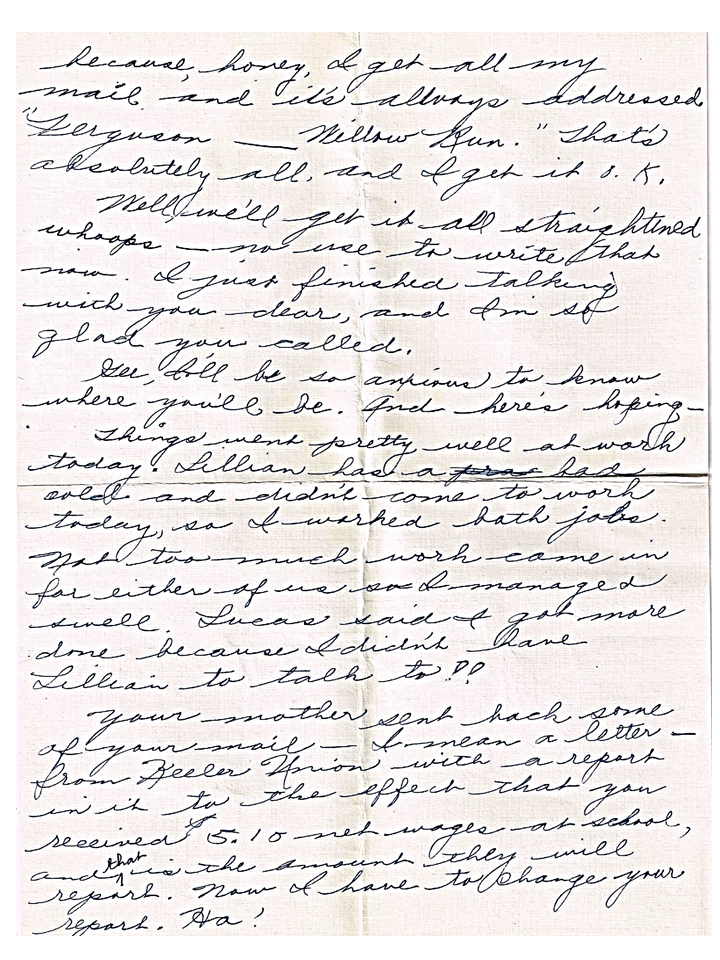 because, honey, I get all my
mail and it's allways addressed
"Ferguson — Willow Run." That's
absolutely all, and I get it O.K.
Well, we'll get it all straightined
whoops — no use to write that
now. I just finished talking
with you dear, and I'm so
glad you called.
Gee, I'll be so anxious to know
where you'll be. And here's hoping—
Things went pretty well at work
today. Lillian has a bad
cold and didn't come to work
today, so I worked both jobs.
Not too much work came in
for either of us so I managed
swell. Lucas said I got more
done because I didn't have
Lillian to talk to!!
Your mother sent back some
of your mail — I mean a letter —
from Keeler Union with a report
in it to the effect that you
received $5.10 net wages at school,
and that is the amount they will
report. Now I have to change your
report. Ha!